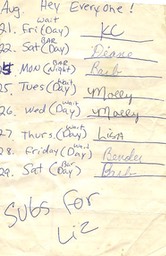 Aug. Hey Everyone!
21. Fri (Day) Wait KC
22. Sat (Day) BAR Diane
Mon (Night) BAR Barb
25. Tues (Day) Wait Molly
26. Wed (Day) Wait Molly
27 Thurs. (Day) Wait Lisa
28. Friday (Day) Wait
29. Sat (Day) BAR Barb
Subs For
Liz